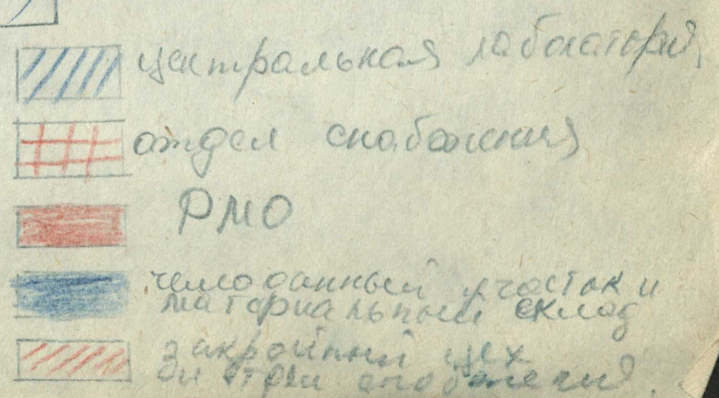 центральная лаболаторий
отдел снабжения
РМО
чемоданный участок и
материальный склад
закройный цех